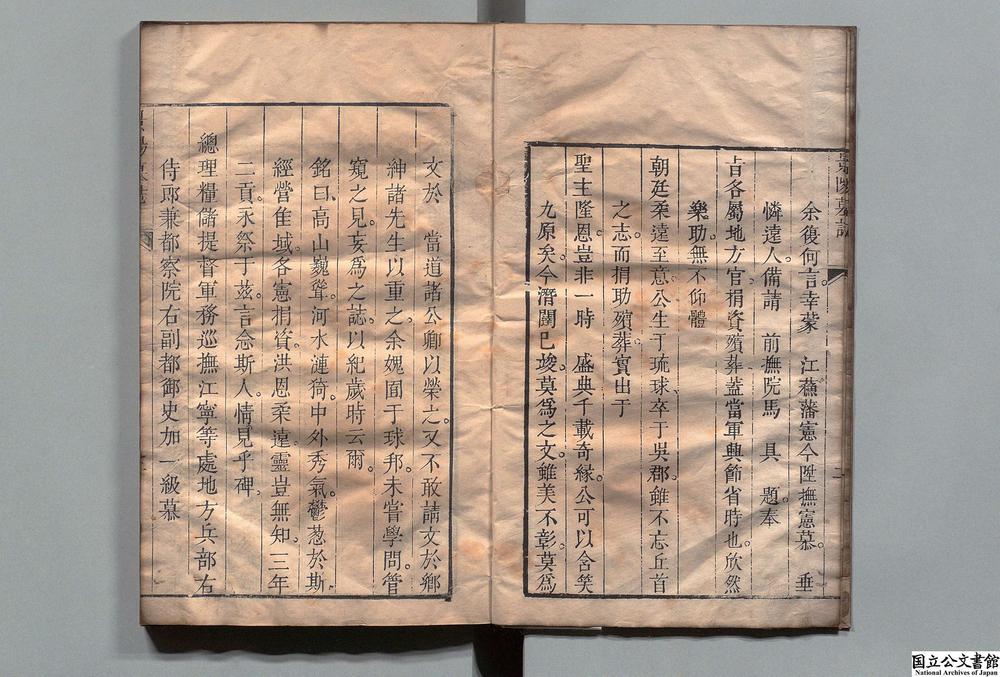 余復何言幸蒙　江蘇藩憲今陞撫憲慕。垂
憐遠人。備請　前撫院馬　具　題奉
旨各屬地方官捐資殯葬。蓋當軍興節省時也。欣然
樂助。無不仰體
朝廷柔遠至意。公生于琉球、卒于吳郡。雖不忘丘首
之志。而捐助殯葬。實出于
聖主隆恩。豈非一時　盛典千載奇緣。公可以含笑
九原矣。今濟闓已竣。莫爲之文。雖美不彰。莫爲
文於　當道諸公卿以榮之。又不敢請文於鄉
紳諸先生以重之。余媿囿于球邦。未嘗學問。管
窺之見。妄爲之誌。以紀歲時云爾。
銘曰。高山巍聳。河水漣猗。中外秀氣。鬱葱於斯
經營隹域。各憲捐資。洪恩柔遠。靈豈無知。三年
二貢。永祭于茲。言念斯人。情見乎碑。
總理糧儲提督軍務巡撫江寧等處地方兵部右
侍郎兼都察院右副都御史加一級慕
二
国立公文書館
National Archives of Japan